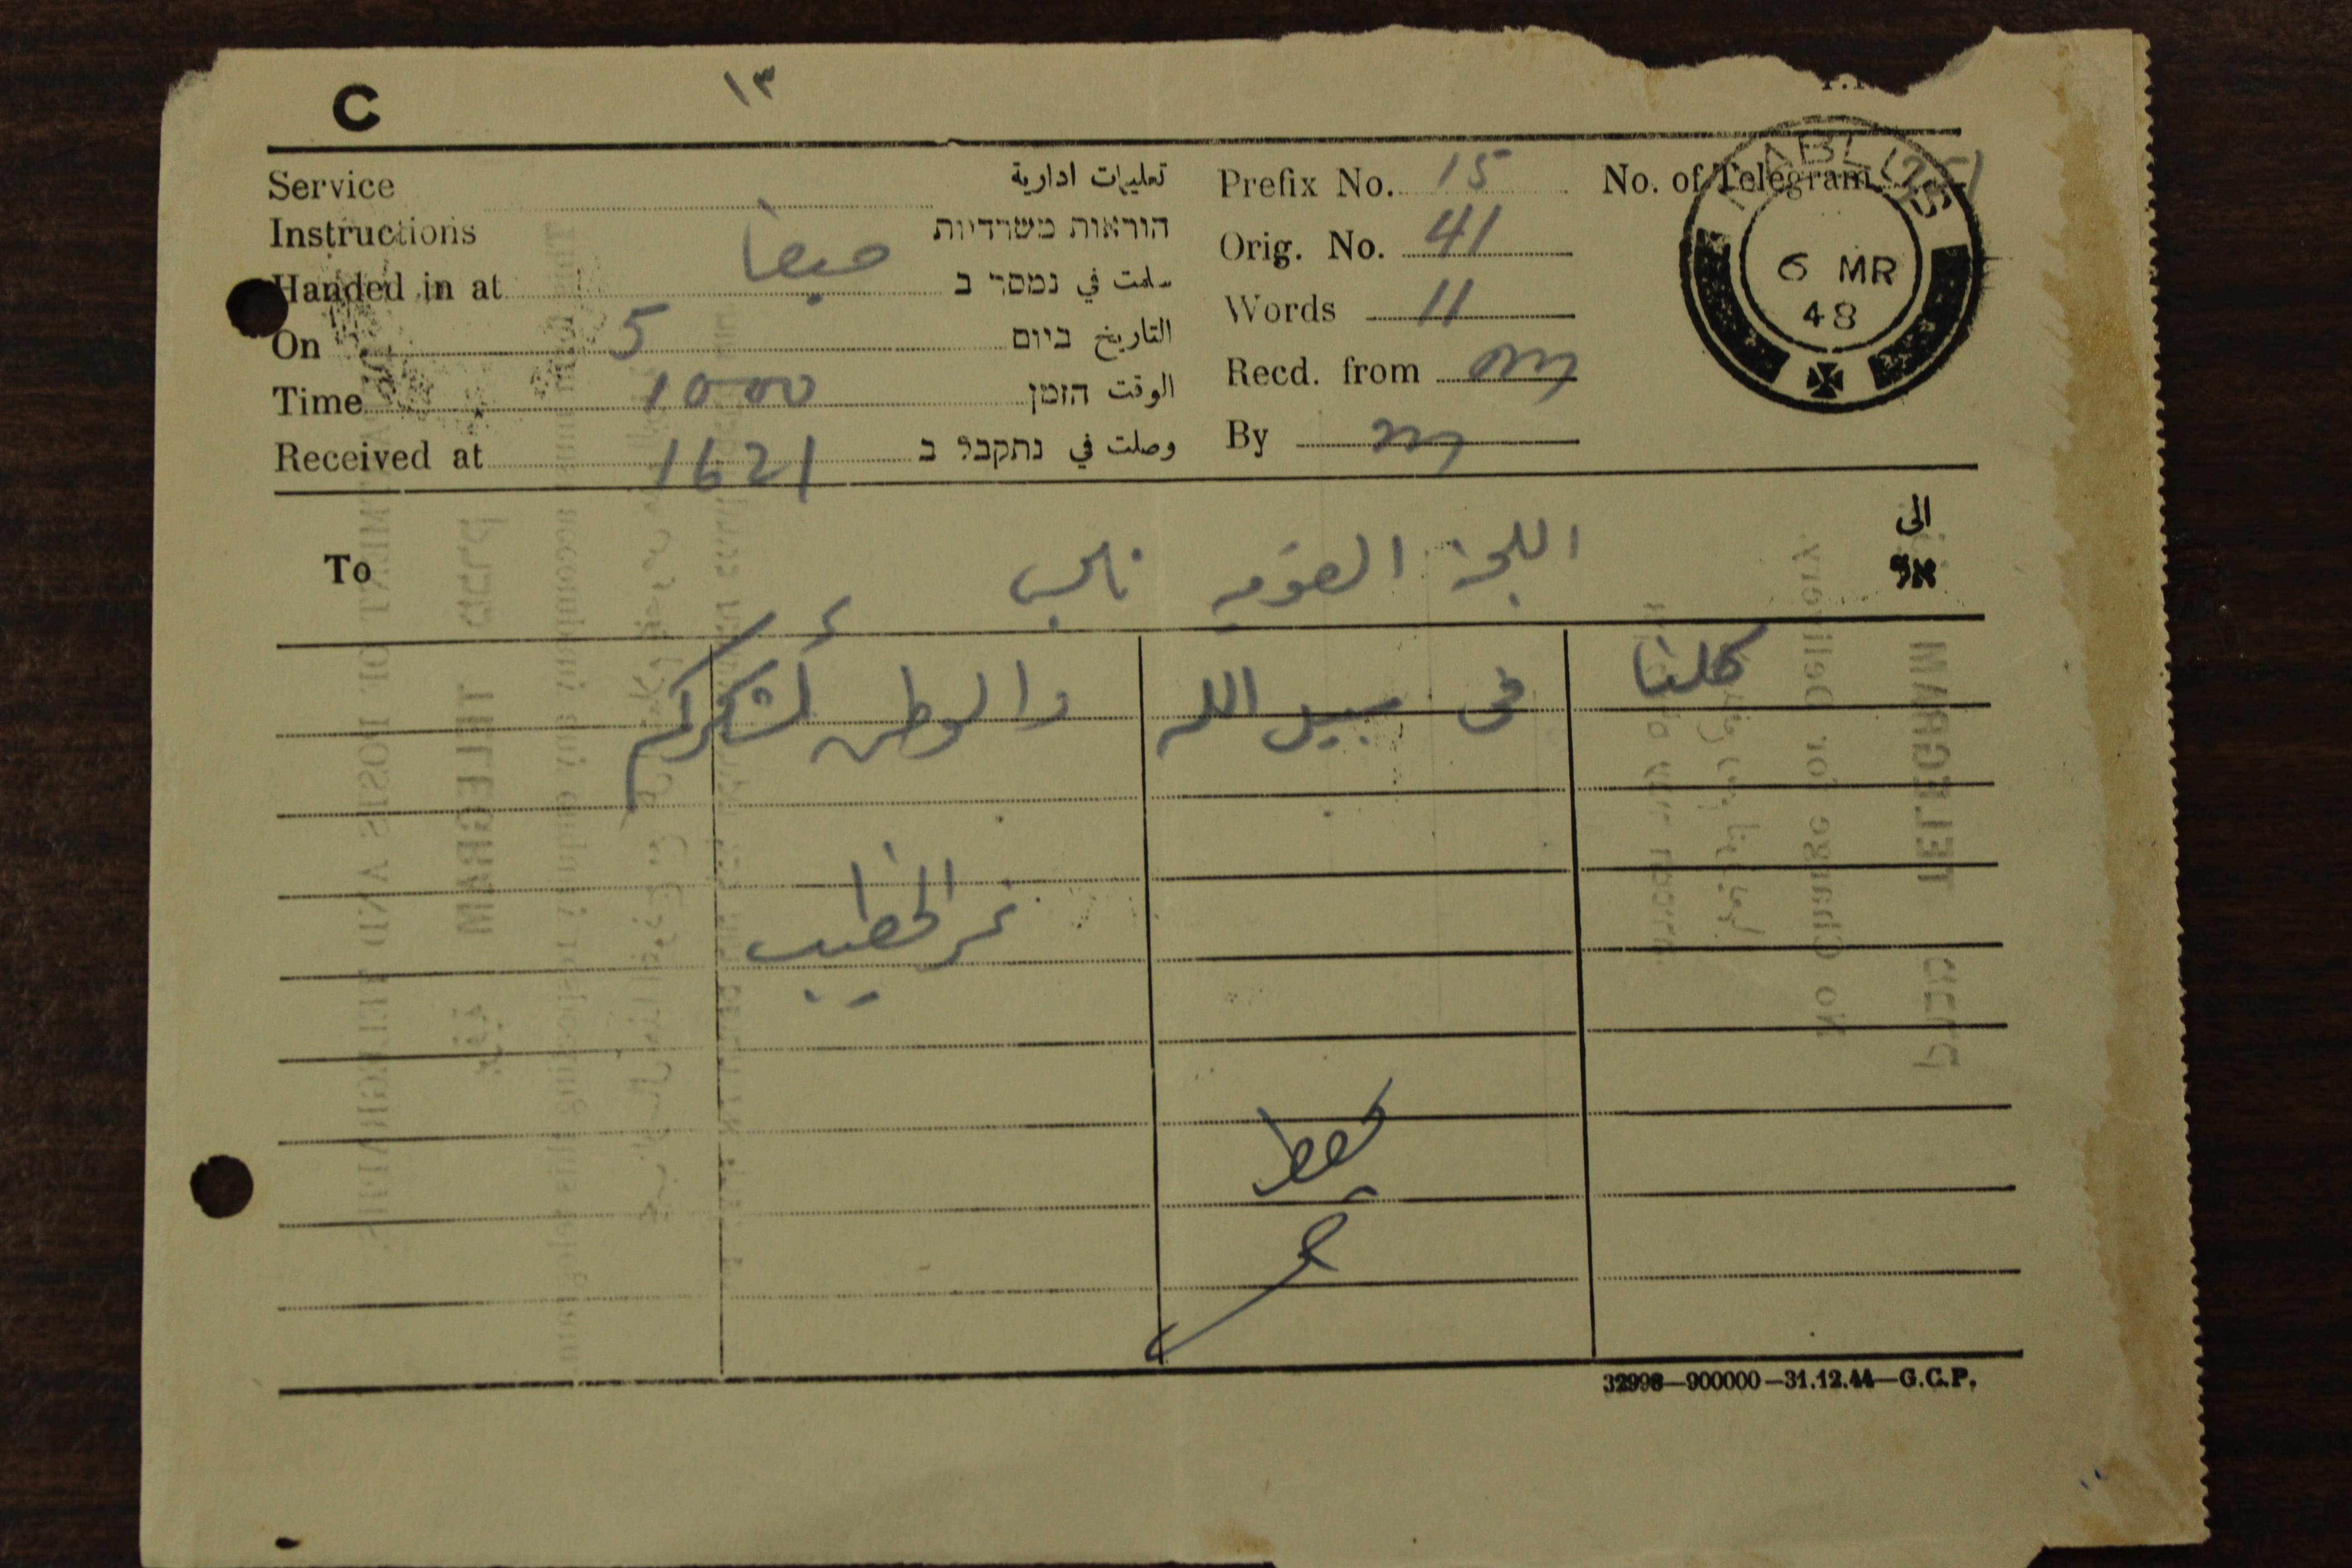 C
١٣
Service
Instructions
تعليمات ادارية
הוראות משרדיות
Handed in at حيفا سلمت في נמסר ב
On 5 التاريخ ביום
Time 10 00 الوقت הזמן
Received at 1621 وصلت في נתקבל ב
Prefix No. 15 No. of Telegram
Orig. No. 41
Words 11
Recd. from
By
NABLUS
6 MR
48
To اللجنة القومية نابلس الى
אל
كلنا في سبيل الله والوطن أشكركم
نمر الخطيب
يحفظ
32998—900000—31.12.44—G.C.P.